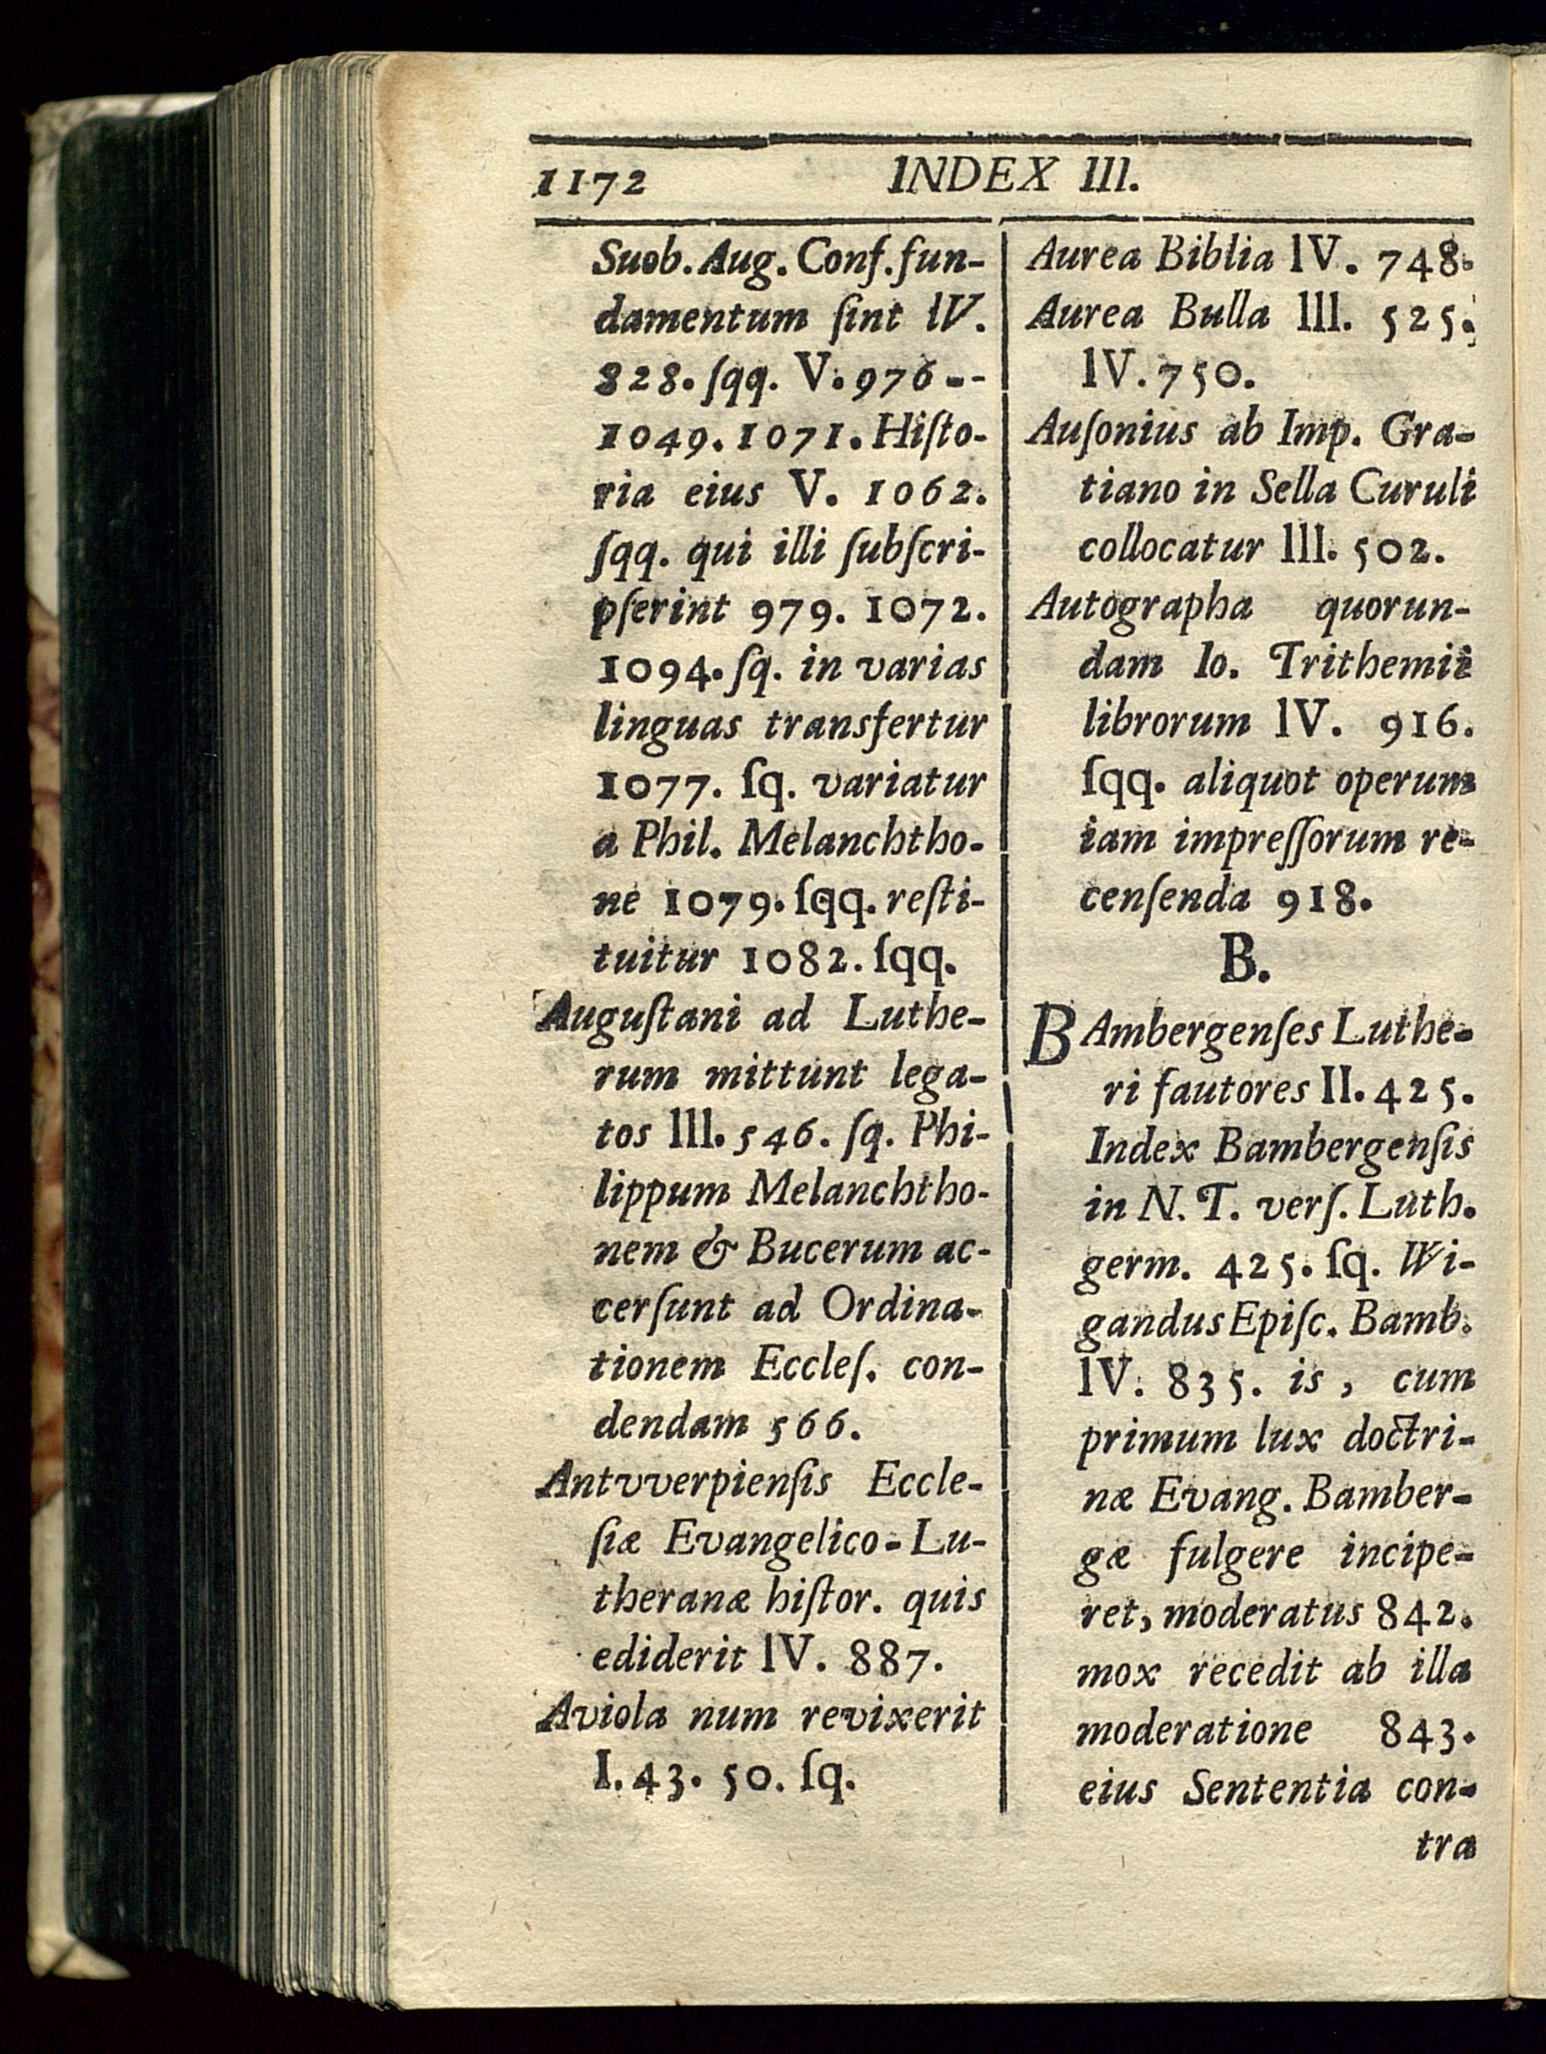 1172 INDEX III.
Suob. Aug. Conf. fun-
damentum ſint IV.
828. ſqq. V. 976 --
1049. 1071. Hiſto-
ria eius V. 1062.
ſqq. qui illi ſubſcri-
pſerint 979. 1072.
1094. ſq. in varias
linguas transfertur
1077. ſq. variatur
a Phil. Melanchtho-
ne 1079. ſqq. reſti-
tuitur 1082. ſqq.
Auguſtani ad Luthe-
rum mittunt lega-
tos III. 546. ſq. Phi-
lippum Melanchtho-
nem & Bucerum ac-
cerſunt ad Ordina-
tionem Eccleſ. con-
dendam 566.
Antvverpienſis Eccle-
ſiæ Evangelico-Lu-
theranæ hiſtor. quis
ediderit IV. 887.
Aviola num revixerit
I. 43. 50. ſq.
Aurea Biblia IV. 748.
Aurea Bulla III. 525.
IV. 750.
Auſonius ab Imp. Gra-
tiano in Sella Curuli
collocatur III. 502.
Autographa quorun-
dam Io. Trithemii
librorum IV. 916.
ſqq. aliquot operum
iam impreſſorum re-
cenſenda 918.
B.
BAmbergenſes Luthe-
ri fautores II. 425.
Index Bambergenſis
in N. T. verſ. Luth.
germ. 425. ſq. Wi-
gandus Epiſc. Bamb.
IV. 835. is, cum
primum lux doctri-
næ Evang. Bamber-
gæ fulgere incipe-
ret, moderatus 842.
mox recedit ab illa
moderatione 843.
eius Sententia con-
tra